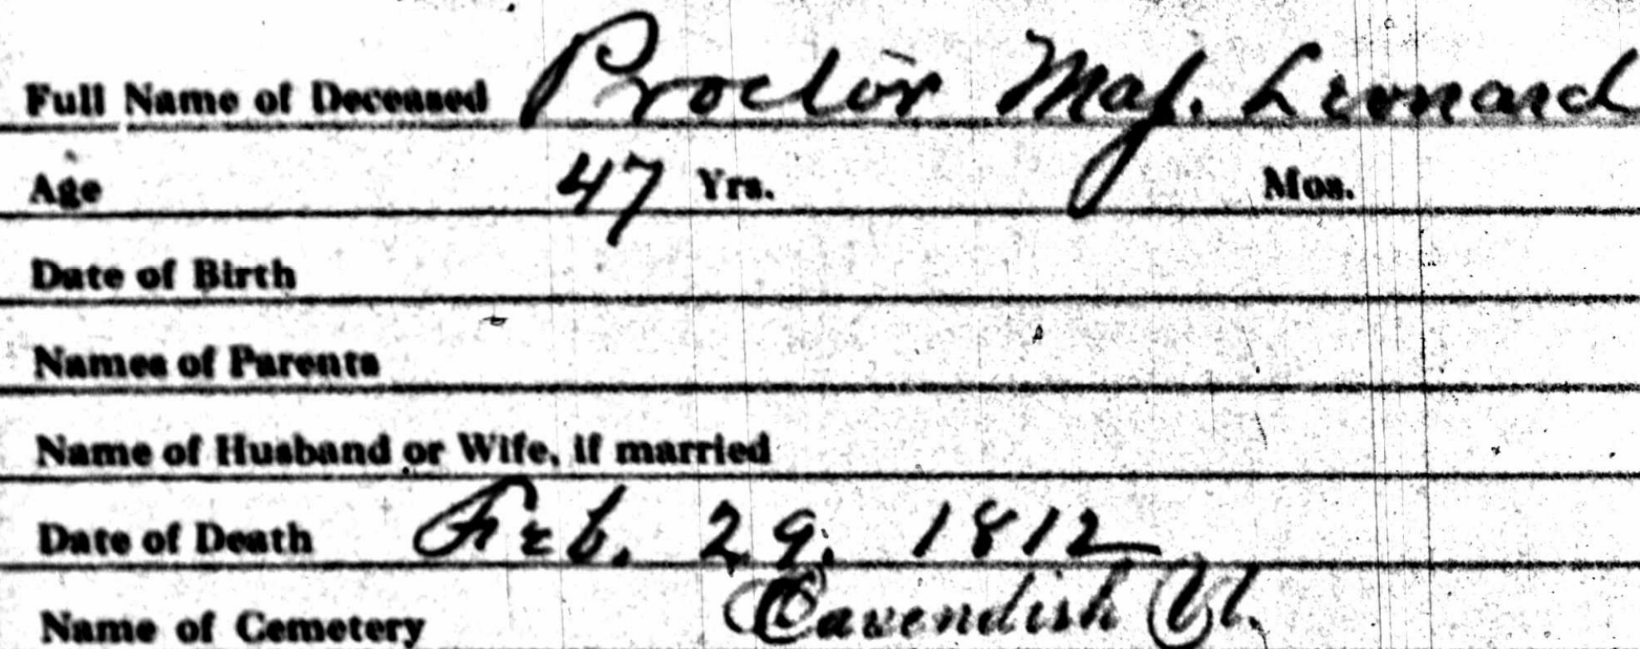 Full Name of Deceased Proctor Maj. Leonard
Age 47 Yrs. Mos.
Date of Birth
Names of Parents
Name of Husband or Wife, if married
Date of Death Feb. 29. 1812
Name of Cemetery Cavendish Vt.